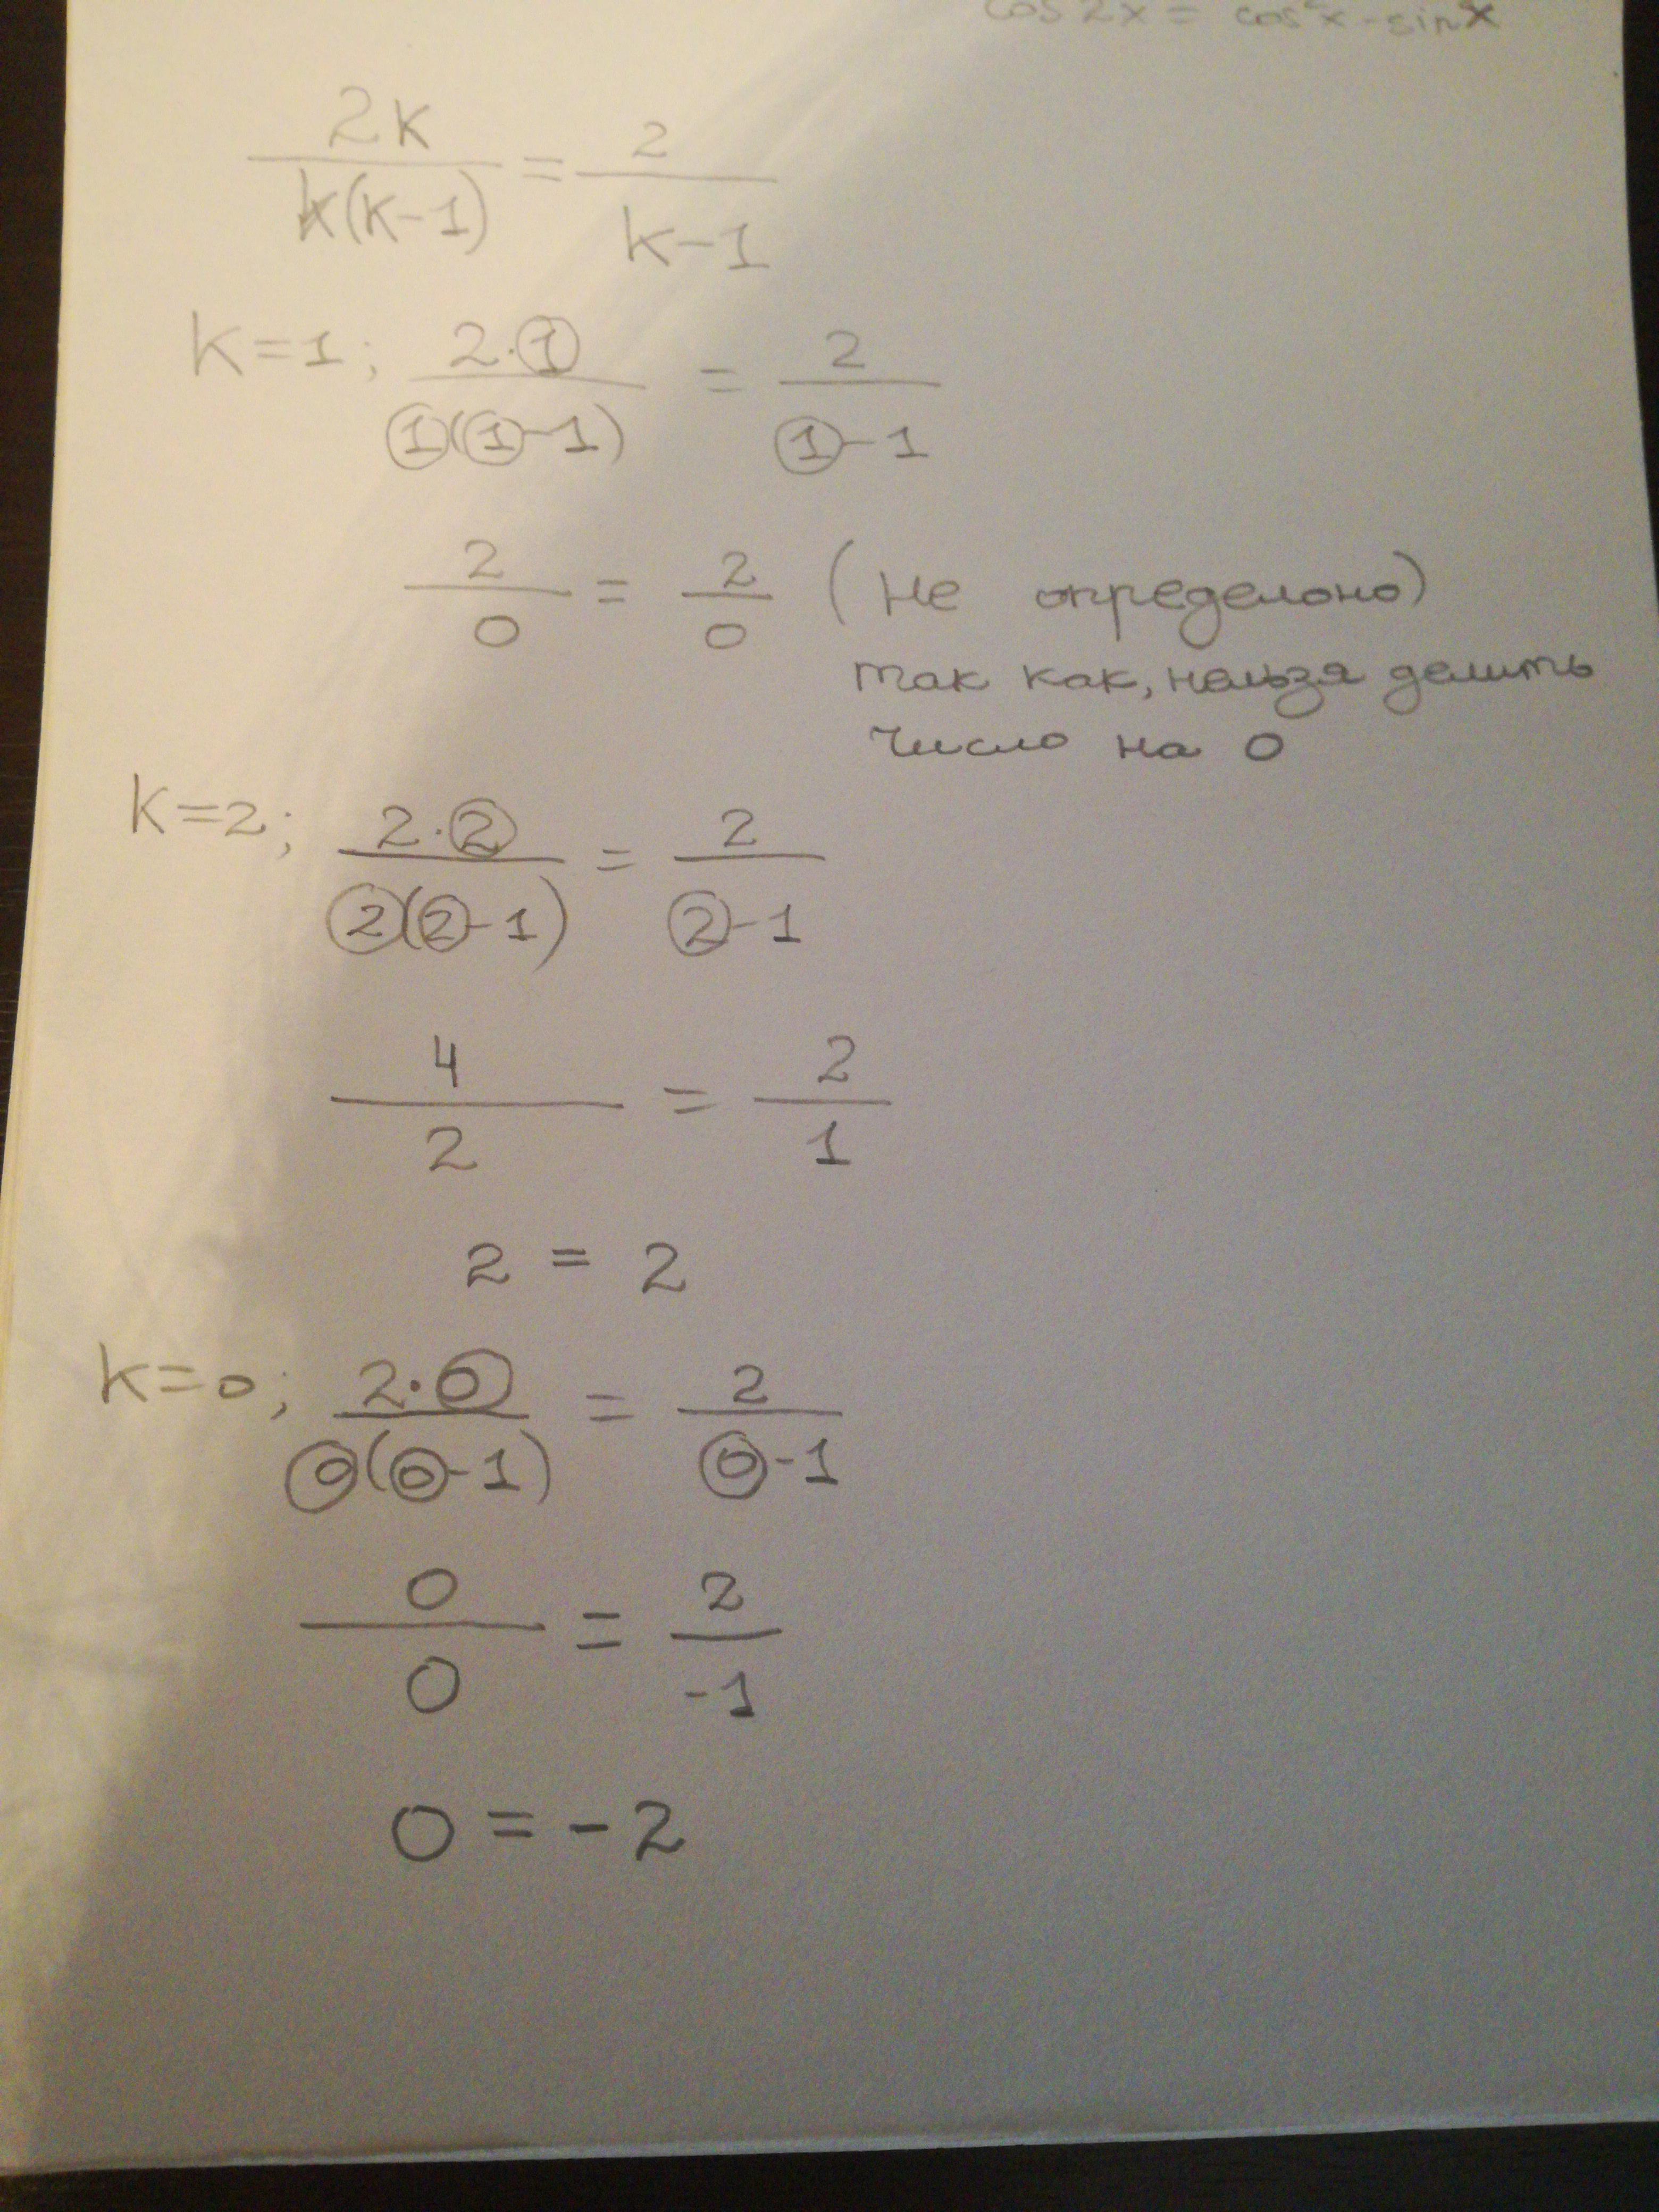 cos 2x = cos²x - sin²x
2k / k(k-1) = 2 / k-1
k=1; 2·1 / 1(1-1) = 2 / 1-1
2/0 = 2/0 (не определоно)
так как, нельзя делить
число на 0
k=2; 2·2 / 2(2-1) = 2 / 2-1
4/2 = 2/1
2 = 2
k=0; 2·0 / 0(0-1) = 2 / 0-1
0/0 = 2/-1
0 = -2